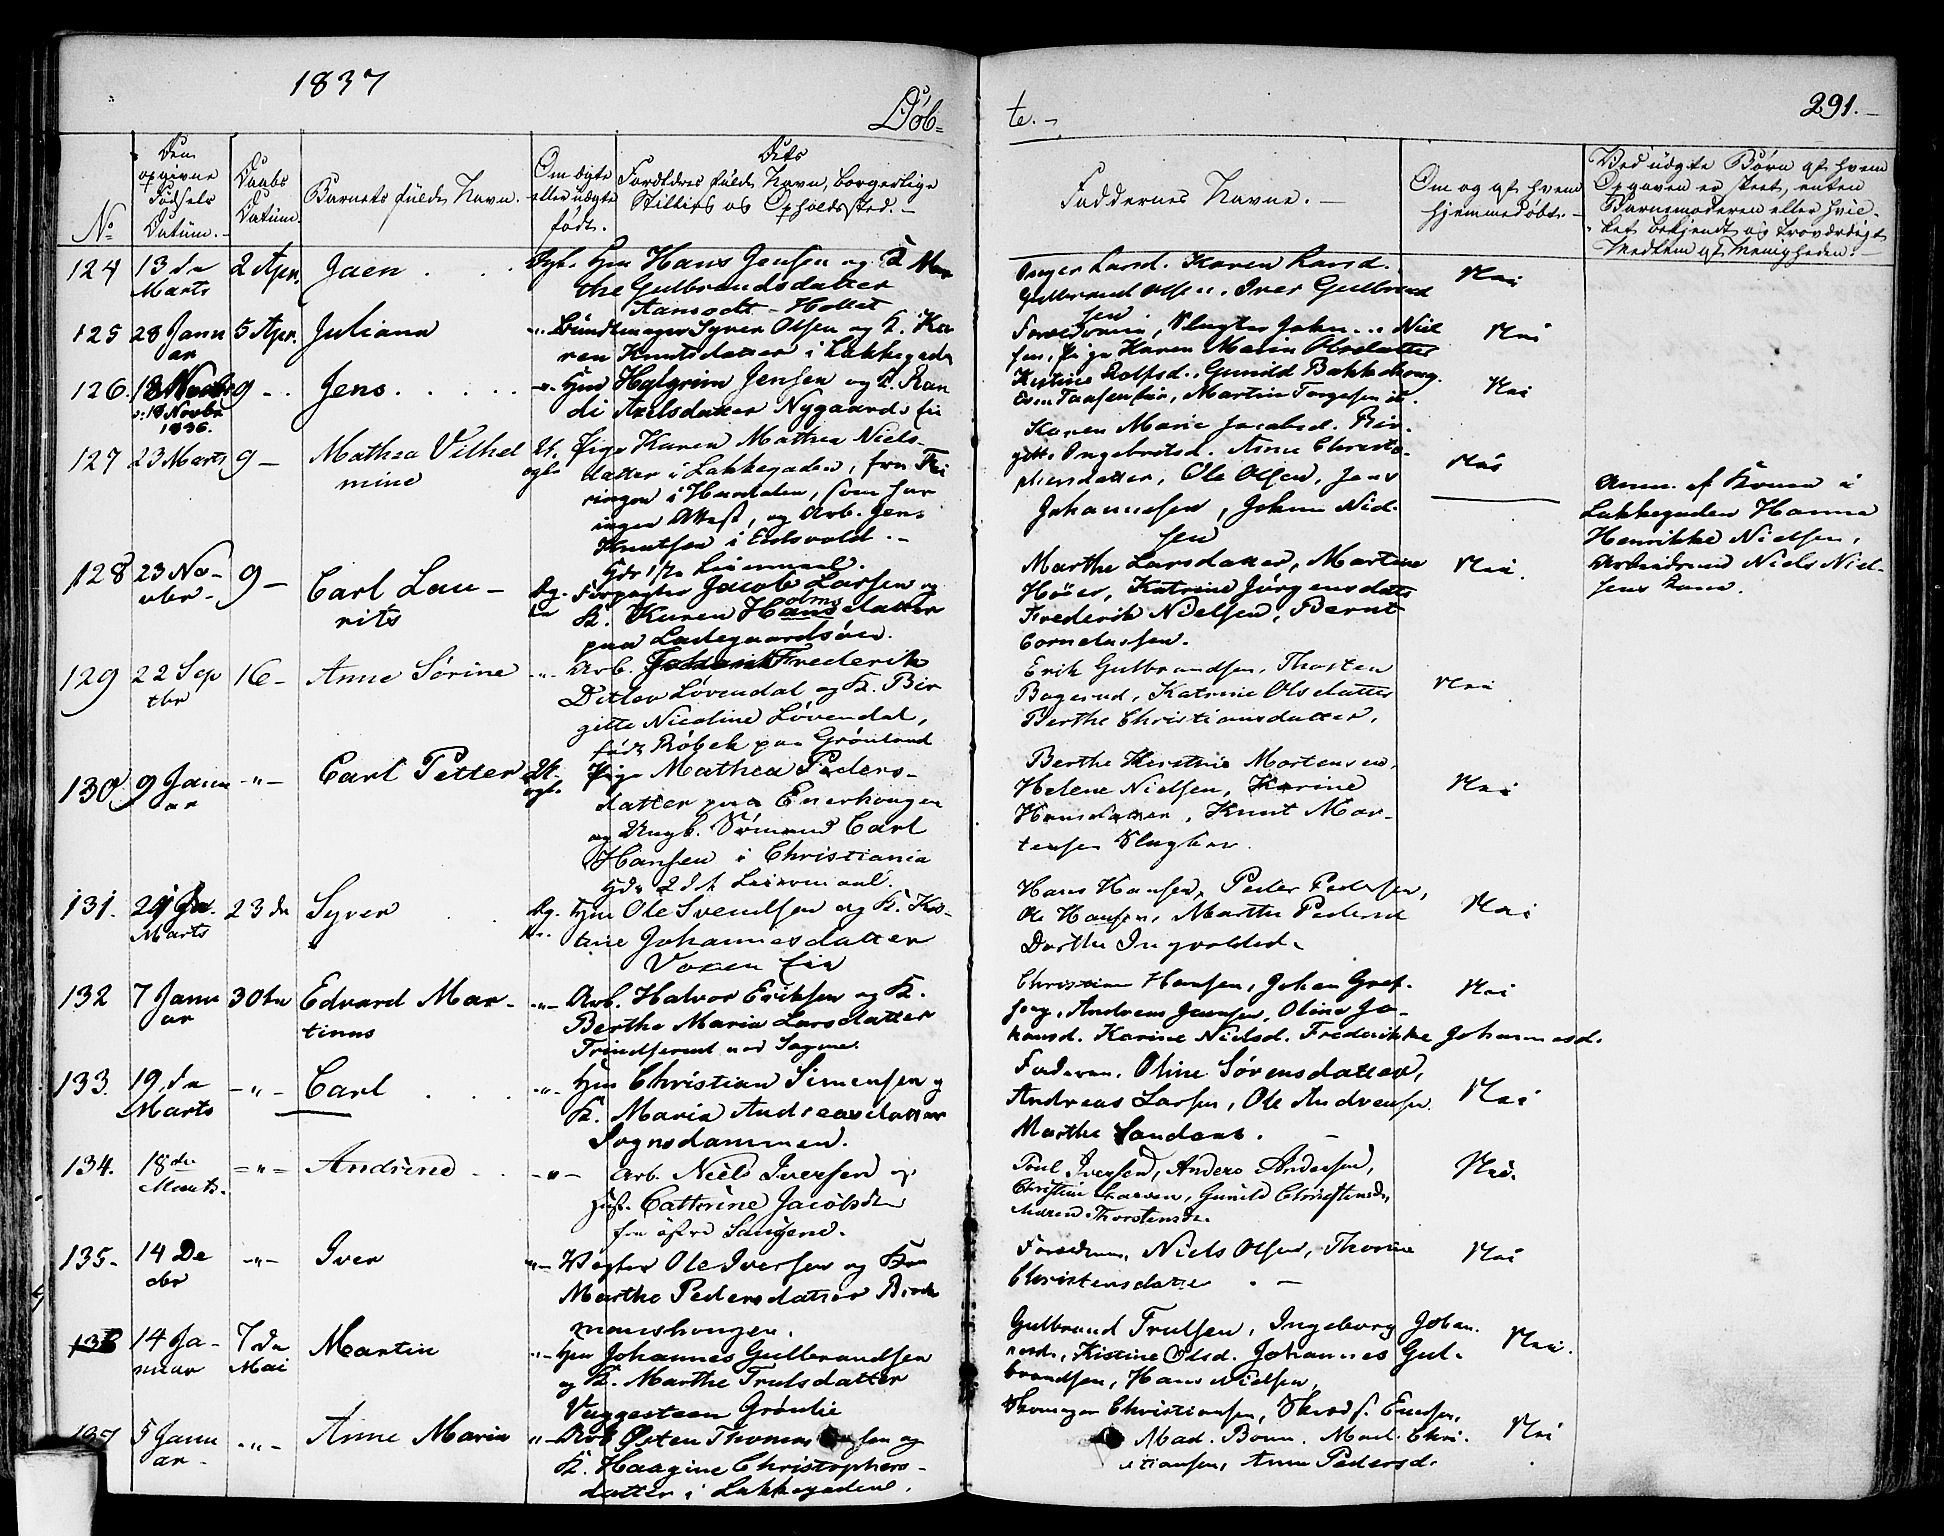 1837
Døb-
te. -
291. -
No
Den
opgivne
Fødsels
Datum. -
Daabs
Datum.
Barnets fulde Navn. -
Om ægte
eller uægte
født.
Dets
Forældres fulde Navn, borgerlige
Stilling og Opholdssted. -
Faddernes Navne. -
Om og af hvem
hjemmedøbt. -
Ved uægte Børn af hvem
Opgaven er skeet, enten
Barnemoderen eller hvil-
ket bekjendt og troværdigt
Medlem af Menigheden. -
124 13 de Marts 2 Apr. Jaen
Hans Jensen og K. Mar-
the Gulbrandsdatter
Inger Larsd. Karen Larsd.
Gulbrand Olsen, Iver Gulbrand
sen
Nei
125 28 Janu
ar 5 Apr. Juliana
Syver Olsen og K. Ka-
ren Knutsdatter i Lakkegade
Nei
sen, Pige Karen Marie Olsdatter
126. 18 Novbr
1836. 9 - Jens
Halgrim Jensen og K. Ran
di Axelsdatter Nygaards
Kistine Rolfsd. Gunild Bakkehoug
Martin Torgesen
Nei
127 23 Marts 9 - Mathea Vilhel
mine
Ucht. Pige Karen Mathea Niels-
datter i Lakkegaden, fra
i Hurdalen, som har
ingen Attest, og Arb. Jens
Knutsen i Eidsvold. -
Hds 1ste Leiermaal.
Karen Marie Jacobsd. Bir-
gitte Ingebretsd. Anne Christo-
phersdatter, Ole Olsen, Jens
Johannesen, Johan Niel-
sen
Nei
Anm. af Konen i
Lakkegaden Hanna
Henrikke Nielsen,
Arbeidsmand Niels Niel-
sens Kone.
128 23 No-
vbr - 9 - Carl Lau -
rits
Forpagter Jacob Larsen og
K. Karen Holmsdatter
paa Ladegaardsøen.
Marthe Larsdatter, Martine
Høier, Katrine Jørgensdatter
Frederik Nielsen, Bernt
Corneliussen.
Nei.
129 22 Sep
tbr 16 - Anne Sørine
Arb. Frederik
Ditlev Løvendal og K. Bir
gitte Nicoline Løvendal,
født Røbek paa Grønland
Erik Gulbrandsen, Thosten
Bagerud, Katrine Olsdatter
Berthe Christiansdatter.
Nei
130 9 Janu
ar -"- Carl Petter
Pige Mathea Peders-
datter paa Enerhougen
og Ungk. Sømand Carl
Hansen i Christiania
Hds 2det Leiermaal.
Berthe Kirstine Mortensen,
Helene Nielsen, Karine
Hansdatter, Knut Mor-
tensen
Nei
131. Marts 23 de Syver
Ole Svendsen og K. Kis-
tine Johannesdatter
Voxen eie
Hans Hansen, Peder Pedersen,
Ole Hansen, Marthe Pedersd
Dorthe Ingvoldsd.
Nei
132 7 Janu
ar 30te Edvard Mar-
tinus
-"- Arb. Halvor Eriksen og K.
Berthe Maria Larsdatter
Christian Hansen, Johan Gref-
seng, Andreas Jansen, Oline Jo-
hansd. Karine Nielsd. Frederikke Johannesd.
Nei
133. 19 de
Marts -"- Carl
-"- Christian Simensen og
K. Maria Andreasdatter
Sognsdammen.
Faderen. Oline Sørensdatter,
Andreas Larsen, Ole Andersen.
Marthe Sandaas. -
Nei
134. 18 de
Marts. -"- Andrine
-"- Arb. Niels Iversen og
Cathrine Jacobsdr
Poul Iversen, Anders Andersen,
Christine Larsen, Gunild Christensdr
Maren Thorstensdr.
Nei.
135. 14 De
cbr -"- Iver
-"- Vægter Ole Iversen og Kone
Marthe Pedersdatter Brek
manshougen.
Niels Olsen, Thorine
Christensdatter. -
Nei
136 14 Ja-
nuar 7 de
Mai Martin
-"- Johannes Gulbrandsen
og K. Marthe Trulsdatter
Vaggesteen Grønlie
Gulbrand Trulsen, Ingeborg Johan
nesd., Kistine Olsd. Johannes Gul-
brandsen, Hans Nielsen,
Nei.
137 5 Janu
ar - -"- Anne Maria
-"- Arb Østen Thomas sen og
K. Haagine Christophers-
datter i Lakkegaden.
Skomager Christiansen,
Mad. Mad. Chri-
stiansen, Anne Pedersd.
Nei